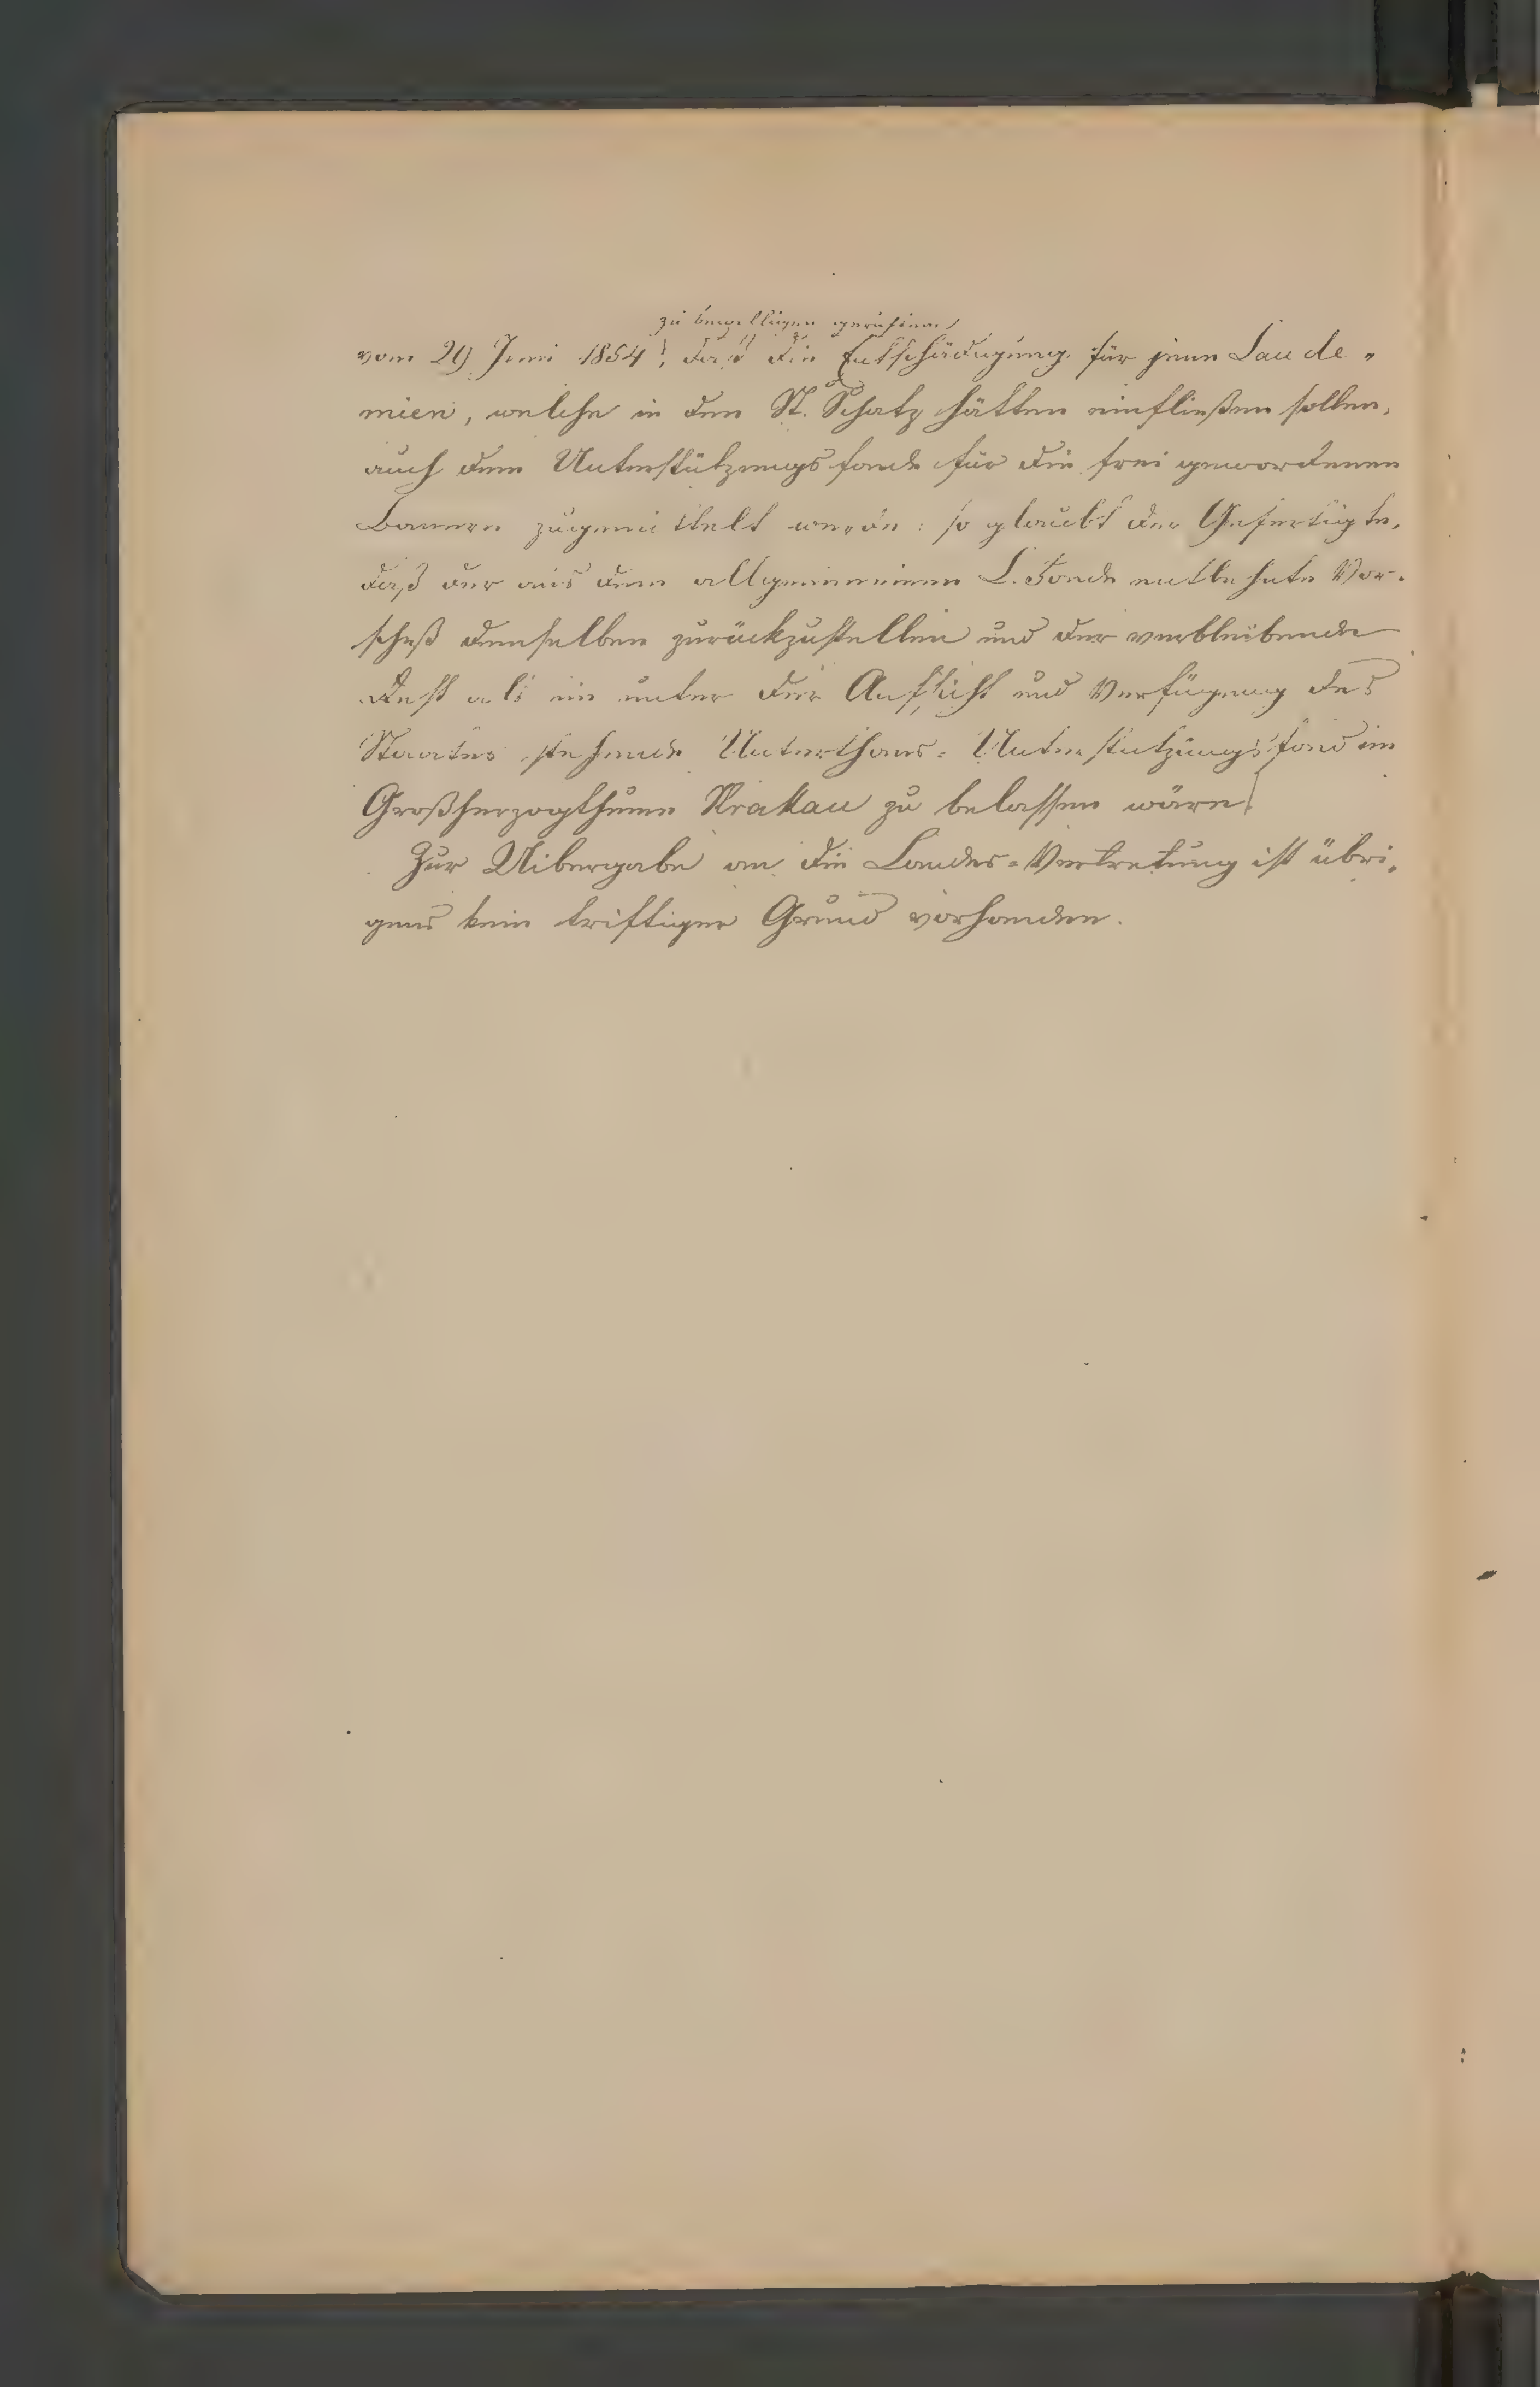 zu bewilligen geruhten,
vom 29 Juni 1854, daß die Entschädigung für jene Laude„
mien, welche in den St. Schatz hätten einfließen sollen,
auch dem Unterstützungsfonde für die frei gewordenen
Bauern zugemittelt werde: so glaubt der Gefertigte,
daß der aus dem allgemeinen L. Fonde entlehnte Vor-
schuß demselben zurückzustellen und der verbleibende
Rest als ein unter der Aufsicht und Verfügung des
Staates stehender Unterthans=Unterstützungsfond im
Großherzogthume Krakau zu belassen wäre.
Zur Uibergabe an die Landes=Vertretung ist übri„
gens kein triftiger Grund vorhanden.